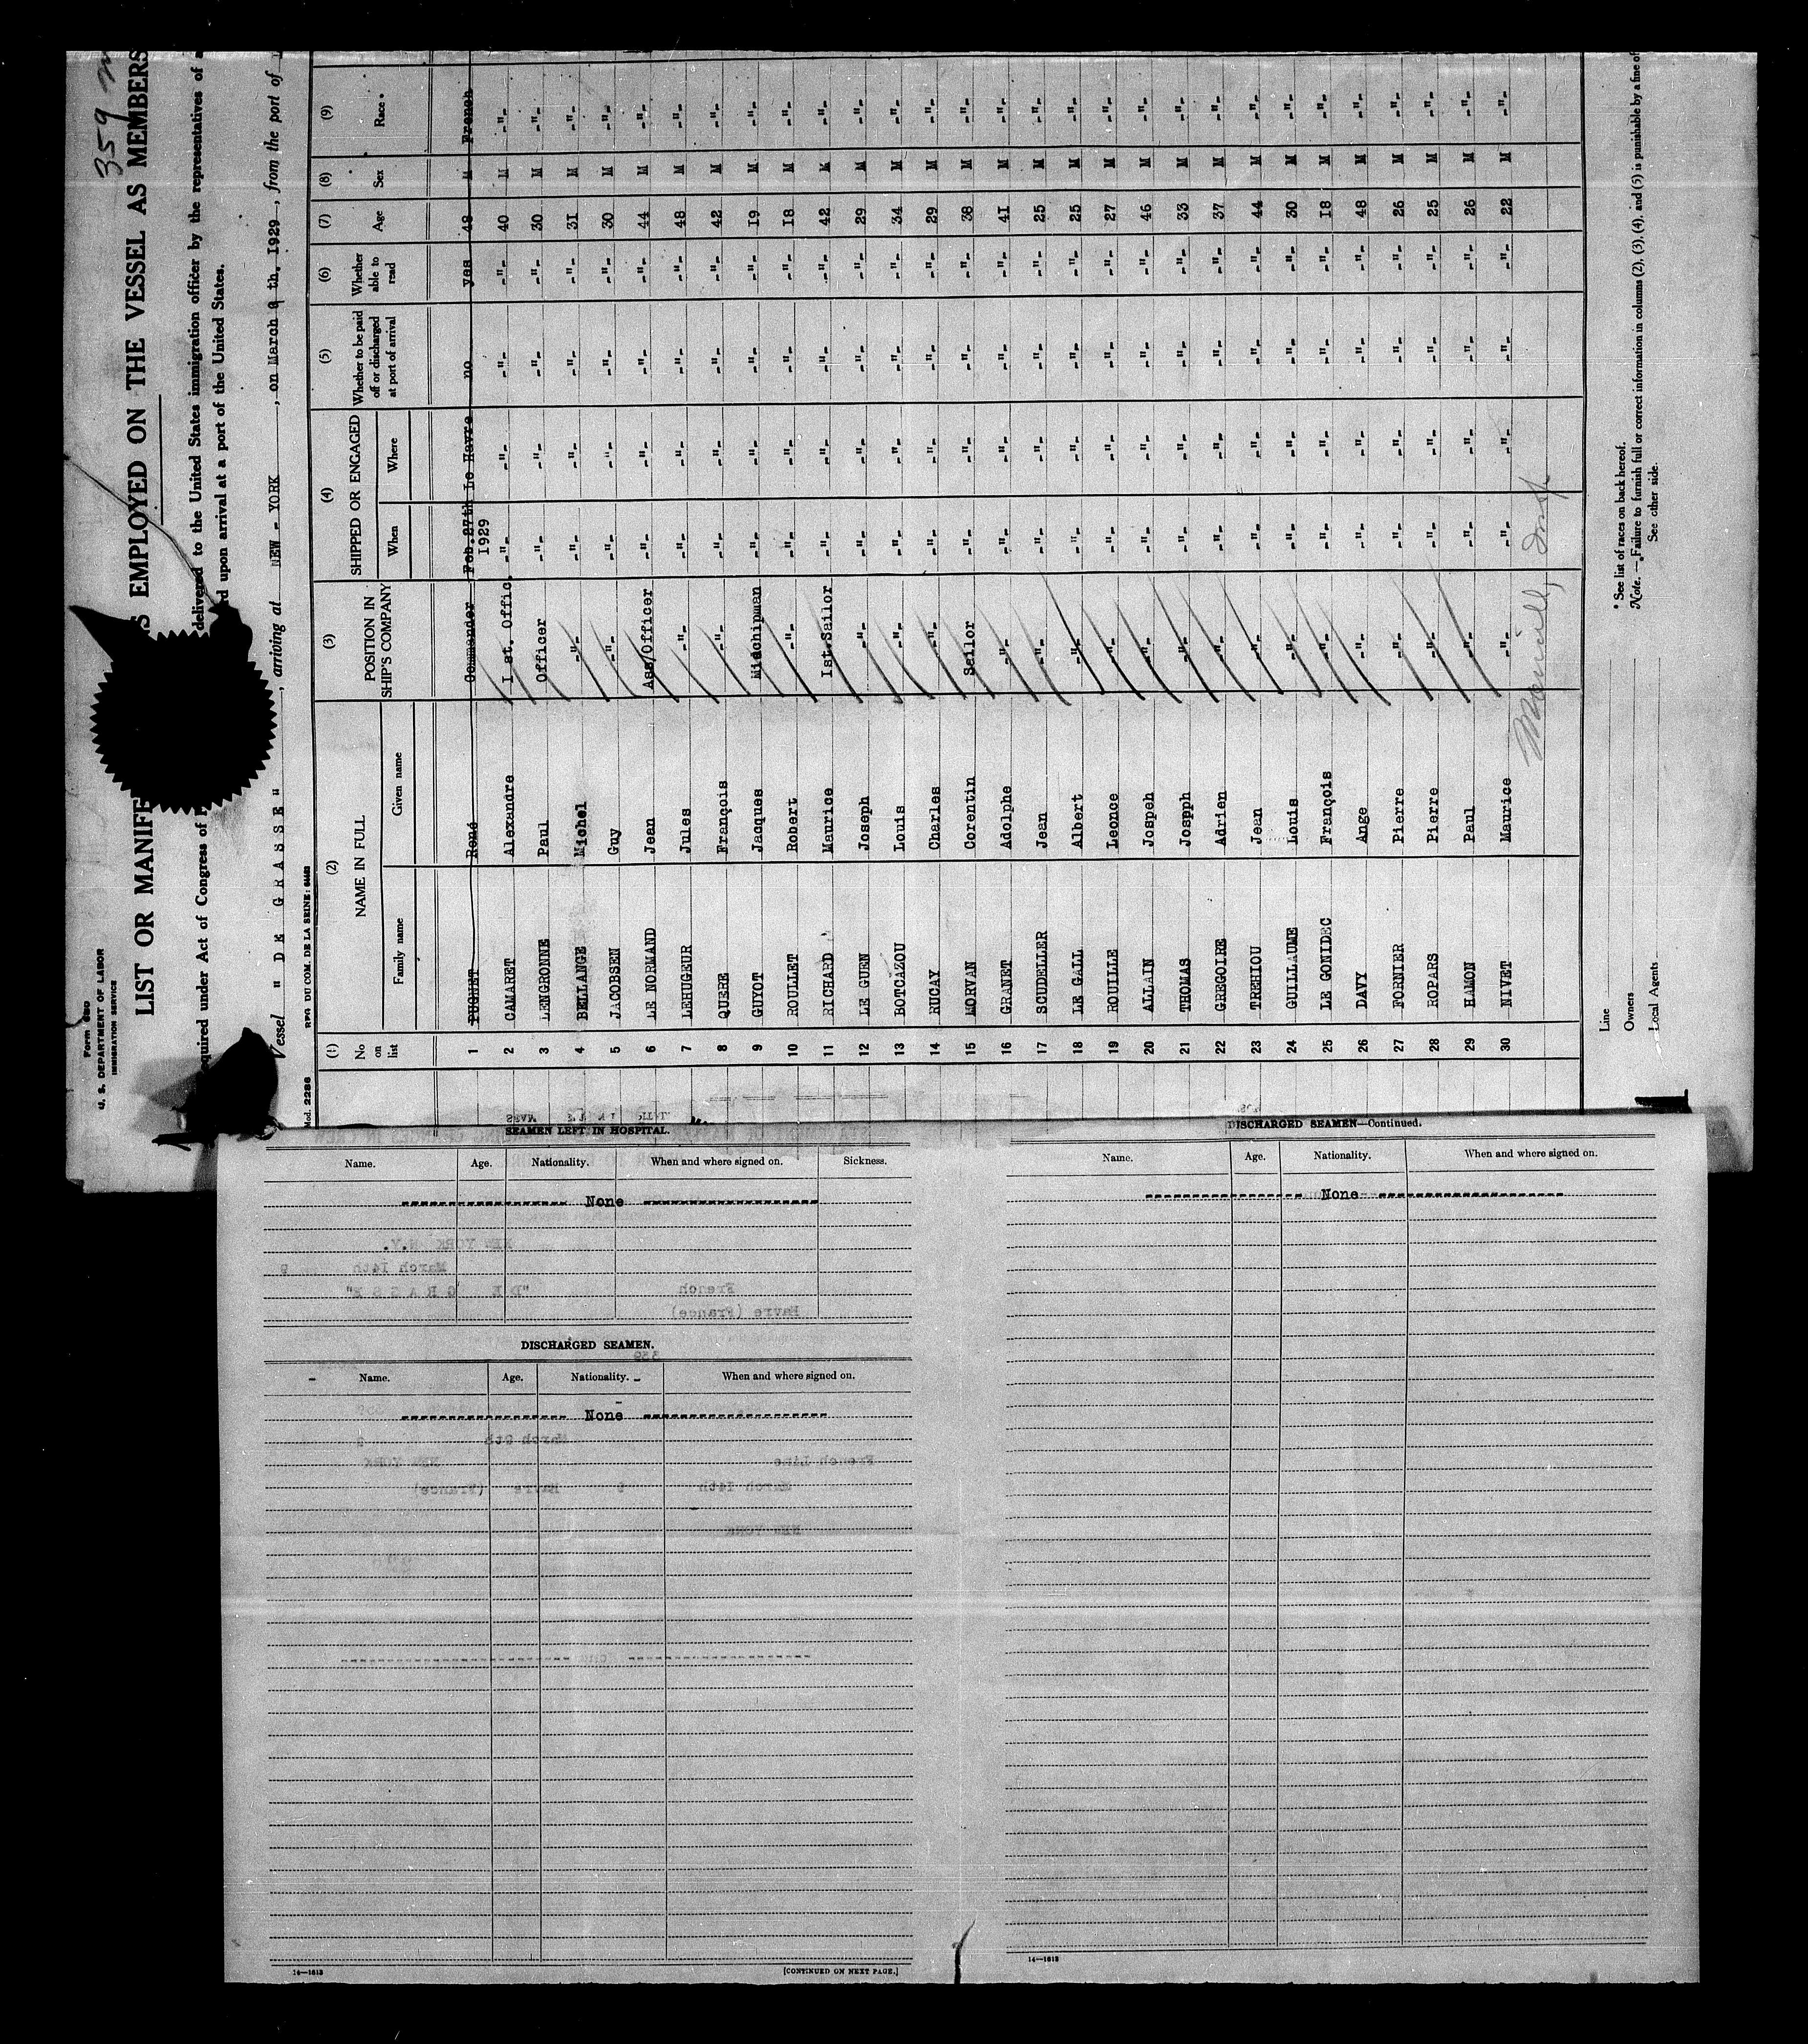 359
Form 680
U. S. DEPARTMENT OF LABOR
IMMIGRATION SERVICE
LIST OR MANIFE S EMPLOYED ON THE VESSEL AS MEMBERS
equired under Act of Congress of delivered to the United States immigration officer by the representatives of a
d upon arrival at a port of the United States.
Vessel " D E G R A S S E " , arriving at NEW - YORK , on March 9 th. 1929 , from the port of
Mod. 2286 RPG DU COM. DE LA SEINE:
(1) (2) (3) (4) (5) (6) (7) (8) (9)
No on list NAME IN FULL POSITION IN SHIP'S COMPANY SHIPPED OR ENGAGED Whether to be paid off or discharged at port of arrival Whether able to read Age Sex Race *
Family name Given name When Where
1 PUGUET René Commander Feb.27th 1929 Le Havre no yes 48 M French
2 CAMARET Alexandre I st. Offic. -"- -"- -"- -"- 40 M -"-
3 LENGRONNE Paul Officer -"- -"- -"- -"- 30 M -"-
4 BELLANGE Michel -"- -"- -"- -"- -"- 31 M -"-
5 JACOBSEN Guy -"- -"- -"- -"- -"- 30 M -"-
6 LE NORMAND Jean Ass/Officer -"- -"- -"- -"- 44 M -"-
7 LEHUGEUR Jules -"- -"- -"- -"- -"- 48 M -"-
8 QUERE François -"- -"- -"- -"- -"- 42 M -"-
9 GUYOT Jacques Midschipman -"- -"- -"- -"- 19 M -"-
10 ROULLET Robert -"- -"- -"- -"- -"- 18 M -"-
11 RICHARD Maurice Ist.Sailor -"- -"- -"- -"- 42 M -"-
12 LE GUEN Joseph -"- -"- -"- -"- -"- 29 M -"-
13 BOTCAZOU Louis -"- -"- -"- -"- -"- 34 M -"-
14 RUCAY Charles -"- -"- -"- -"- -"- 29 M -"-
15 MORVAN Corentin Sailor -"- -"- -"- -"- 38 M -"-
16 GRANET Adolphe -"- -"- -"- -"- -"- 41 M -"-
17 SCUDELLER Jean -"- -"- -"- -"- -"- 25 M -"-
18 LE GALL Albert -"- -"- -"- -"- -"- 25 M -"-
19 ROUILLE Leonce -"- -"- -"- -"- -"- 27 M -"-
20 ALLAIN Jospeh -"- -"- -"- -"- -"- 46 M -"-
21 THOMAS Joseph -"- -"- -"- -"- -"- 33 M -"-
22 GREGOIRE Adrien -"- -"- -"- -"- -"- 37 M -"-
23 TREHIOU Jean -"- -"- -"- -"- -"- 44 M -"-
24 GUILLAUME Louis -"- -"- -"- -"- -"- 30 M -"-
25 LE GONIDEC François -"- -"- -"- -"- -"- 18 M -"-
26 DAVY Ange -"- -"- -"- -"- -"- 48 M -"-
27 FORNIER Pierre -"- -"- -"- -"- -"- 26 M -"-
28 ROPARS Pierre -"- -"- -"- -"- -"- 25 M -"-
29 HAMON Paul -"- -"- -"- -"- -"- 26 M -"-
30 NIVET Maurice -"- -"- -"- -"- -"- 22 M -"-
Line
Owners
Local Agents
* See list of races on back hereof.
Note. — Failure to furnish full or correct information in columns (2), (3), (4), and (5) is punishable by a fine of
See other side.
SEAMEN LEFT IN HOSPITAL.
Name. Age. Nationality. When and where signed on. Sickness.
None
DISCHARGED SEAMEN.
Name. Age. Nationality. When and where signed on.
None
14—1613 [CONTINUED ON NEXT PAGE.]
DISCHARGED SEAMEN—Continued.
Name. Age. Nationality. When and where signed on.
None
14—1613